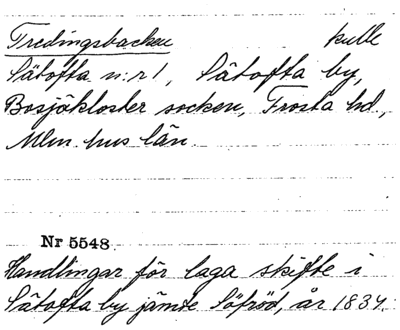 Tredingsbacken kulle
Sätofta n:r 1, Sätofta by,
Bosjökloster socken, Frosta hd,
Mlm. hus län.
Nr 5548.
Handlingar för laga skifte i
Sätofta by jämte Söfröd, år 1834.